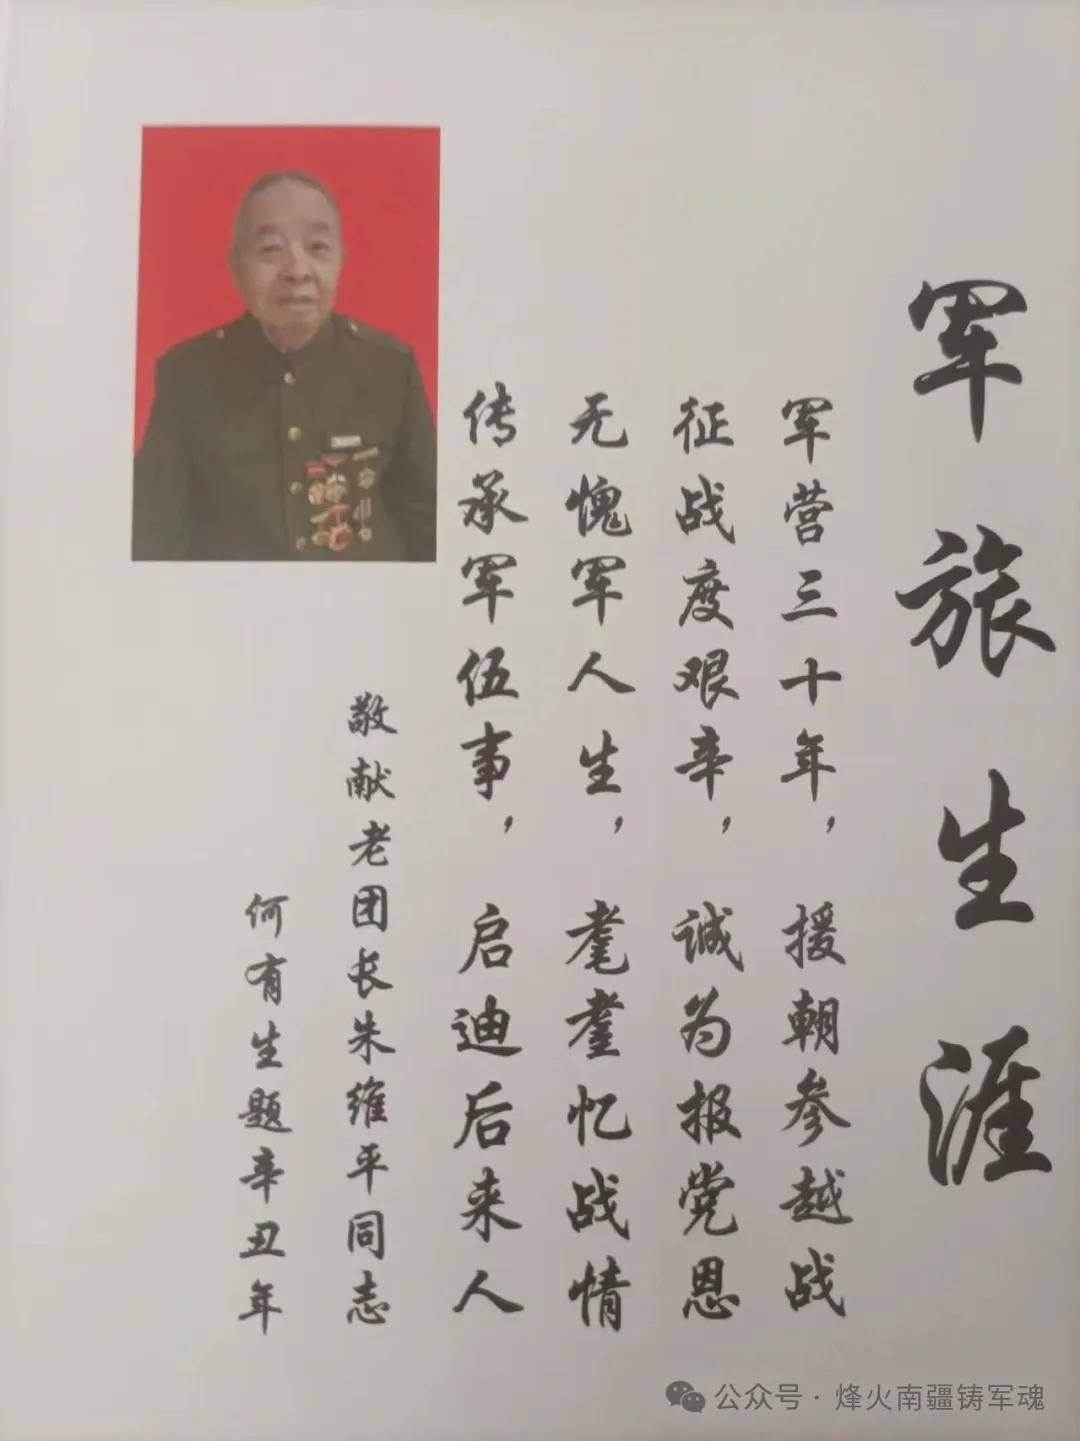 军旅生涯
军营三十年，援朝参越战
征战度艰辛，诚为报党恩
无愧军人生，耄耋忆战情
传承军伍事，启迪后来人
敬献老团长朱维平同志
何有生题辛丑年
公众号·烽火南疆铸军魂